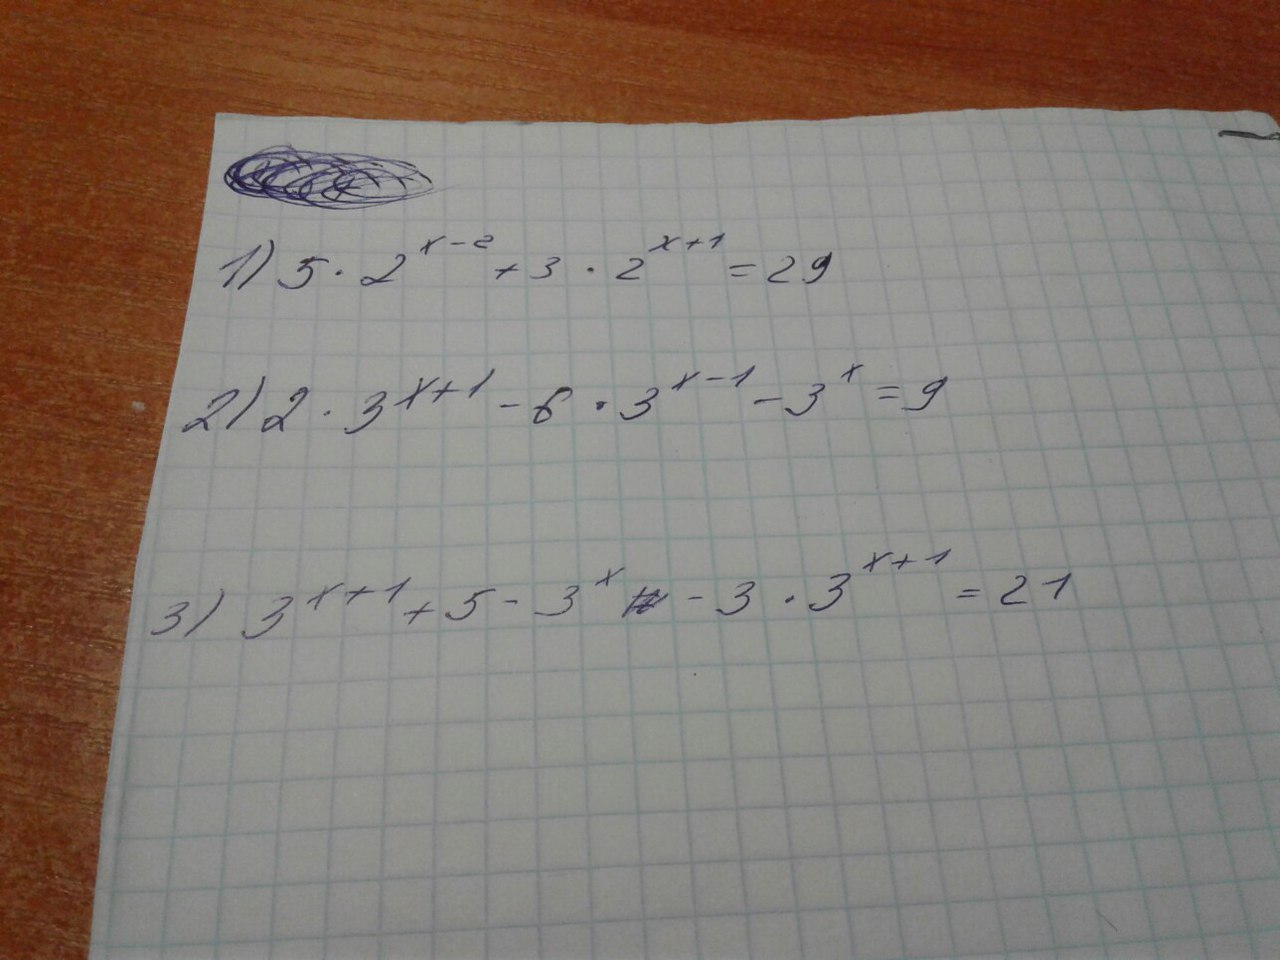 1) 5 · 2^(x-2) + 3 · 2^(x+1) = 29
2) 2 · 3^(x+1) - 6 · 3^(x-1) - 3^x = 9
3) 3^(x+1) + 5 - 3^x - 3 · 3^(x+1) = 21